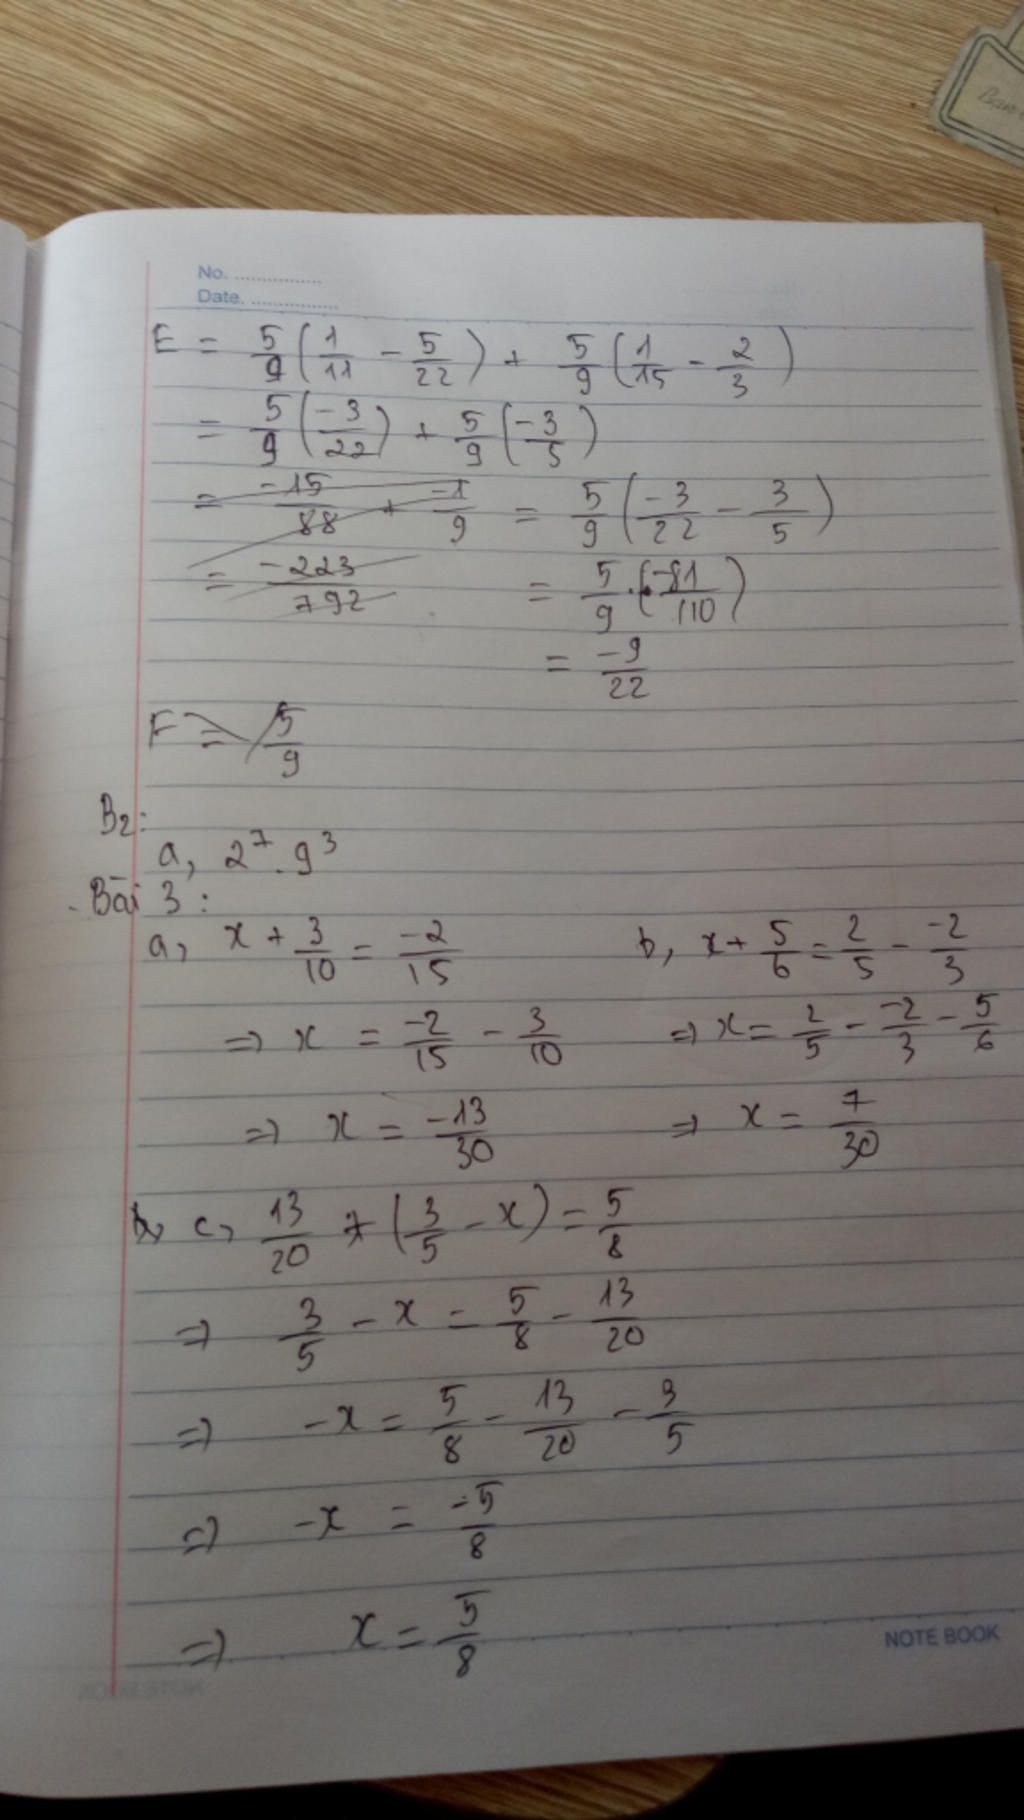 No. ................
Date. ................
E = 5/9 (1/11 - 5/22) + 5/9 (1/15 - 2/3)
= 5/9 (-3/22) + 5/9 (-3/5)
= -15/88 + -1/9 = 5/9 (-3/22 - 3/5)
= -223/792 = 5/9 . (-81/110)
= -9/22
F = 5/9
B2:
a, 2^7 . 9^3
Bài 3 :
a, x + 3/10 = -2/15 b, x + 5/6 = 2/5 - -2/3
=> x = -2/15 - 3/10 => x = 2/5 - -2/3 - 5/6
=> x = -13/30 => x = 7/30
c, 13/20 + (3/5 - x) = 5/8
=> 3/5 - x = 5/8 - 13/20
=> -x = 5/8 - 13/20 - 3/5
=> -x = -5/8
=> x = 5/8
NOTE BOOK